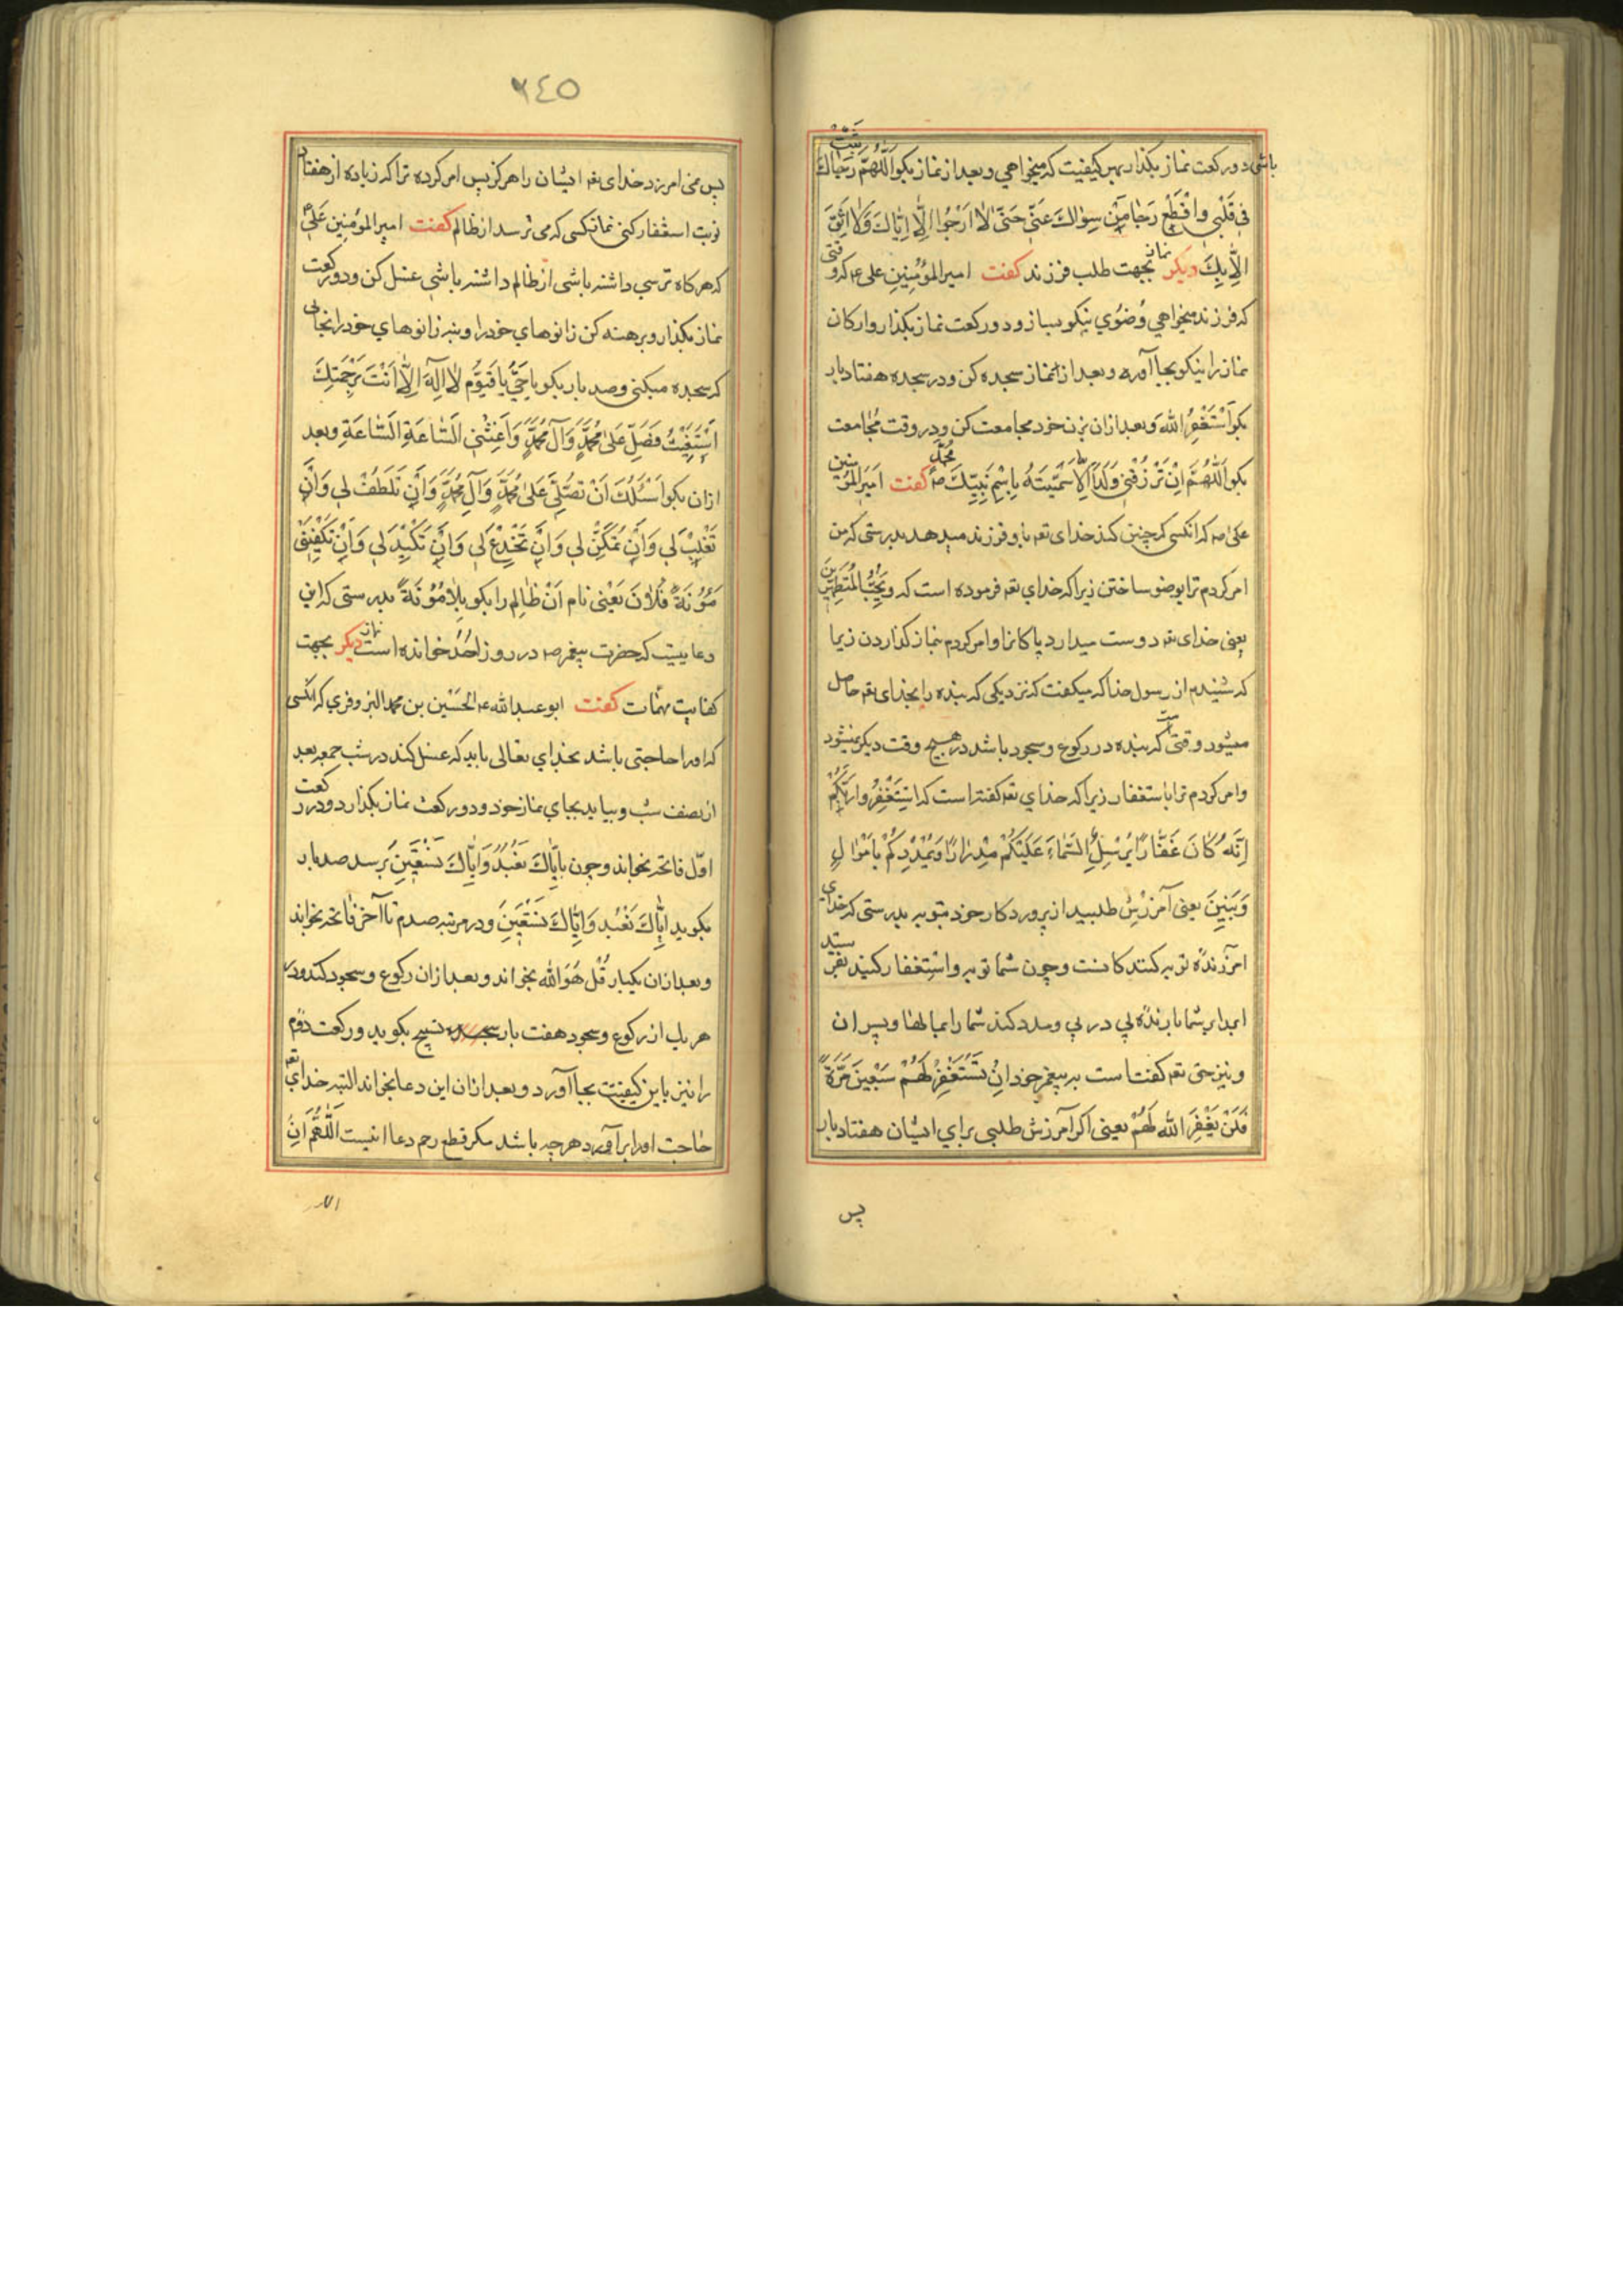 باشی دو رکعت نماز بکذار بهر کیفیت که میخواهی و بعد از نماز بکو اَللّٰهُمَّ ثَبِّتْ رَجاٰكَ
فی قَلْبی وَاقْطَعْ رَجٰا مَنْ سِوٰاكَ عَنّی حَتّیٰ لاٰ اَرْجُوا اِلّٰا اِیّٰاكَ وَلاٰ اَثِقَ
اِلّٰا بِكَ نماز دیکر بجهت طلب فرزند کفت امیر المؤمنین علی ع که وقتی
که فرزند میخواهی وُضُوی نیکو بساز و دو رکعت نماز بکذار و ارکان
نماز را نیکو بجا آور و بعد از نماز سجده کن و در سجده هفتاد بار
بکو اَسْتَغْفِرُ اللّٰه و بعد ازان بزن خود مجامعت کن و در وقت مجامعت
بکو اَللّٰهُمَّ اِنْ تَرْزُقْنی وَلَدًا لَاُسَمِّیَنَّهُ بِاِسْمِ نَبِیِّكَ مُحَمَّدٍ ص کفت امیر المؤمنین
علی ع که انکسی که چنین کند خدای تعـ باو فرزند میدهد بدرستی که من
امر کردم ترا بوضو ساختن زیرا که خدای تعـ فرموده است که وَیُحِبُّ الْمُتَطَهِّرینَ
یعنی خدای تعـ دوست میدارد پاکانرا و امر کردم بنماز کذاردن زیرا
که شنیدم از رسول خدا که میکفت که نزدیکی که بنده را بخدای تعـ حاصل
میشود وقتی است که بنده در رکوع و سجود باشد در هیچ وقت دیکر نمیشود
و امر کردم ترا باستغفار زیرا که خدای تعـ کفته است که اسْتَغْفِرُوا رَبَّكُمْ
اِنَّهُ كٰانَ غَفّٰارًا یُرْسِلِ السَّمٰاءَ عَلَیْكُمْ مِدْرٰارًا وَیُمْدِدْكُمْ بِاَمْوٰالٍ
وَبَنینَ یعنی آمرزش طلبید از پروردکار خود بتوبه بدرستی که خدای
آمرزنده توبه کنندکانست و چون شما توبه و استغفار کنید بفرستد
ابر را بر شما بارنده پی در پی و مدد کند شما را بمالها و پسران
و نیز حق تعـ کفته است به پیغمبر خود اِنْ تَسْتَغْفِرْ لَهُمْ سَبْعینَ مَرَّةً
فَلَنْ یَغْفِرَ اللّٰهُ لَهُمْ یعنی اکر آمرزش طلبی برای ایشان هفتاد بار
پس
٦٤٥
پس نمی امرزد خدای تعـ ایشان را هرکز پس امر کرده ترا که زیاده از هفتاد
نوبت استغفار کنی نماز کسی که می ترسد از ظالم کفت امیر المؤمنین عَلی ع
که هرکاه ترسی داشته باشی از ظالم داشته باشی غسل کن و دو رکعت
نماز بکذار و برهنه کن زانوهای خود را و بنه زانوهای خود را بجائی
که سجده میکنی و صد بار بکو یا حَیُّ یا قَیُّوُم لاٰ اِلٰهَ اِلّٰا اَنْتَ بِرَحْمَتِكَ
اَسْتَغیثُ فَصَلِّ عَلیٰ مُحَمَّدٍ وَآلِ مُحَمَّدٍ وَاَغِثْنی السّٰاعَةَ السّٰاعَةِ و بعد
ازان بکو اَسْئَلُكَ اَنْ تُصَلِّیَ عَلیٰ مُحَمَّدٍ وَآلِ مُحَمَّدٍ وَاَنْ تَلْطُفَ لی وَاَنْ
تَغْلِبَ لی وَاَنْ تَمْكُرَ لی وَاَنْ تَخْدَعَ لی وَاَنْ تَكیْدَ لی وَاَنْ تَكْفِیَنی
مَؤُنَةَ فُلاٰنَ یَعْنی نام اَنْ ظالِم را بکو بِلاٰ مَؤُنَةً بدرستی که این
دعاییست که حضرت پیغمبر ص در روز اُحُد خوانده است نماز دیکر بجهت
کفایت مهمات کفت ابو عبد الله الحُسَین بن محمد البزوفری که انکسی
که اورا حاجتی باشد بخدای تعالی باید که غسل کند در شب جمعه بعد
از نصف شب و بیاید بجای نماز خود و دو رکعت نماز بکذارد و در رکعت
اوّل فاتحه بخواند و چون باِیّٰاكَ نَعْبُدُ وَاِیّٰاكَ نَسْتَعین برسد صد بار
بکوید اِیّٰاكَ نَعْبُد وَاِیّٰاكَ نَسْتَعینَ و در مرتبه صدم تا آخر فاتحه بخواند
و بعد ازان یکبار قُلْ هُوَ الله بخواند و بعد ازان رکوع و سجود کند و در
هر یك از رکوع و سجود هفت بار تسبیح بکوید و رکعت دوّم
را نیز باین کیفیّت بجا آورد و بعد ازان این دعا بخواند البته خدای تعـ
حاجت اورا بر آورد هر چه باشد مکر قطع رحم دعا اینست اَللّٰهُمَّ اِنْ